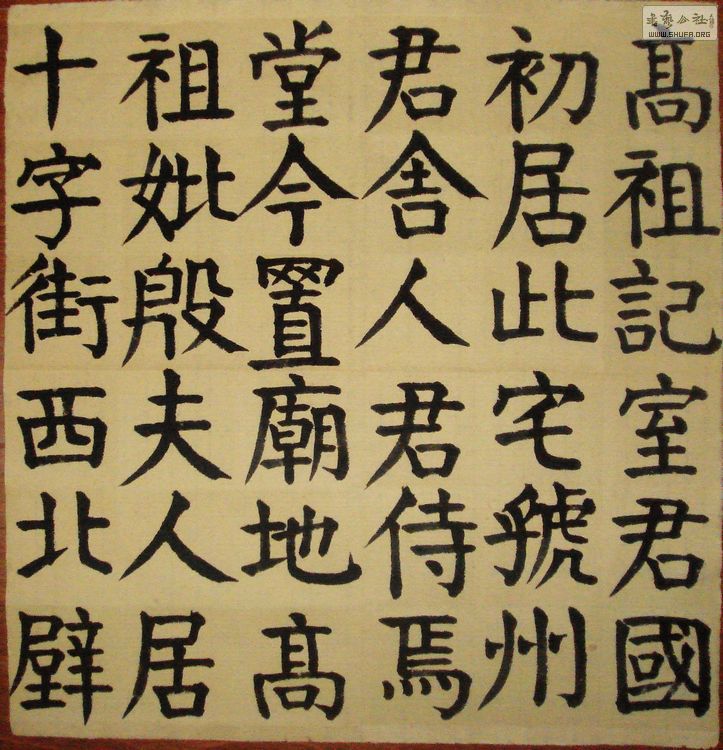 髙祖記室君國
初居此宅虢州
君舍人君侍焉
堂今置廟地髙
祖妣殷夫人居
十字街西北壁
WWW.SHUFA.ORG